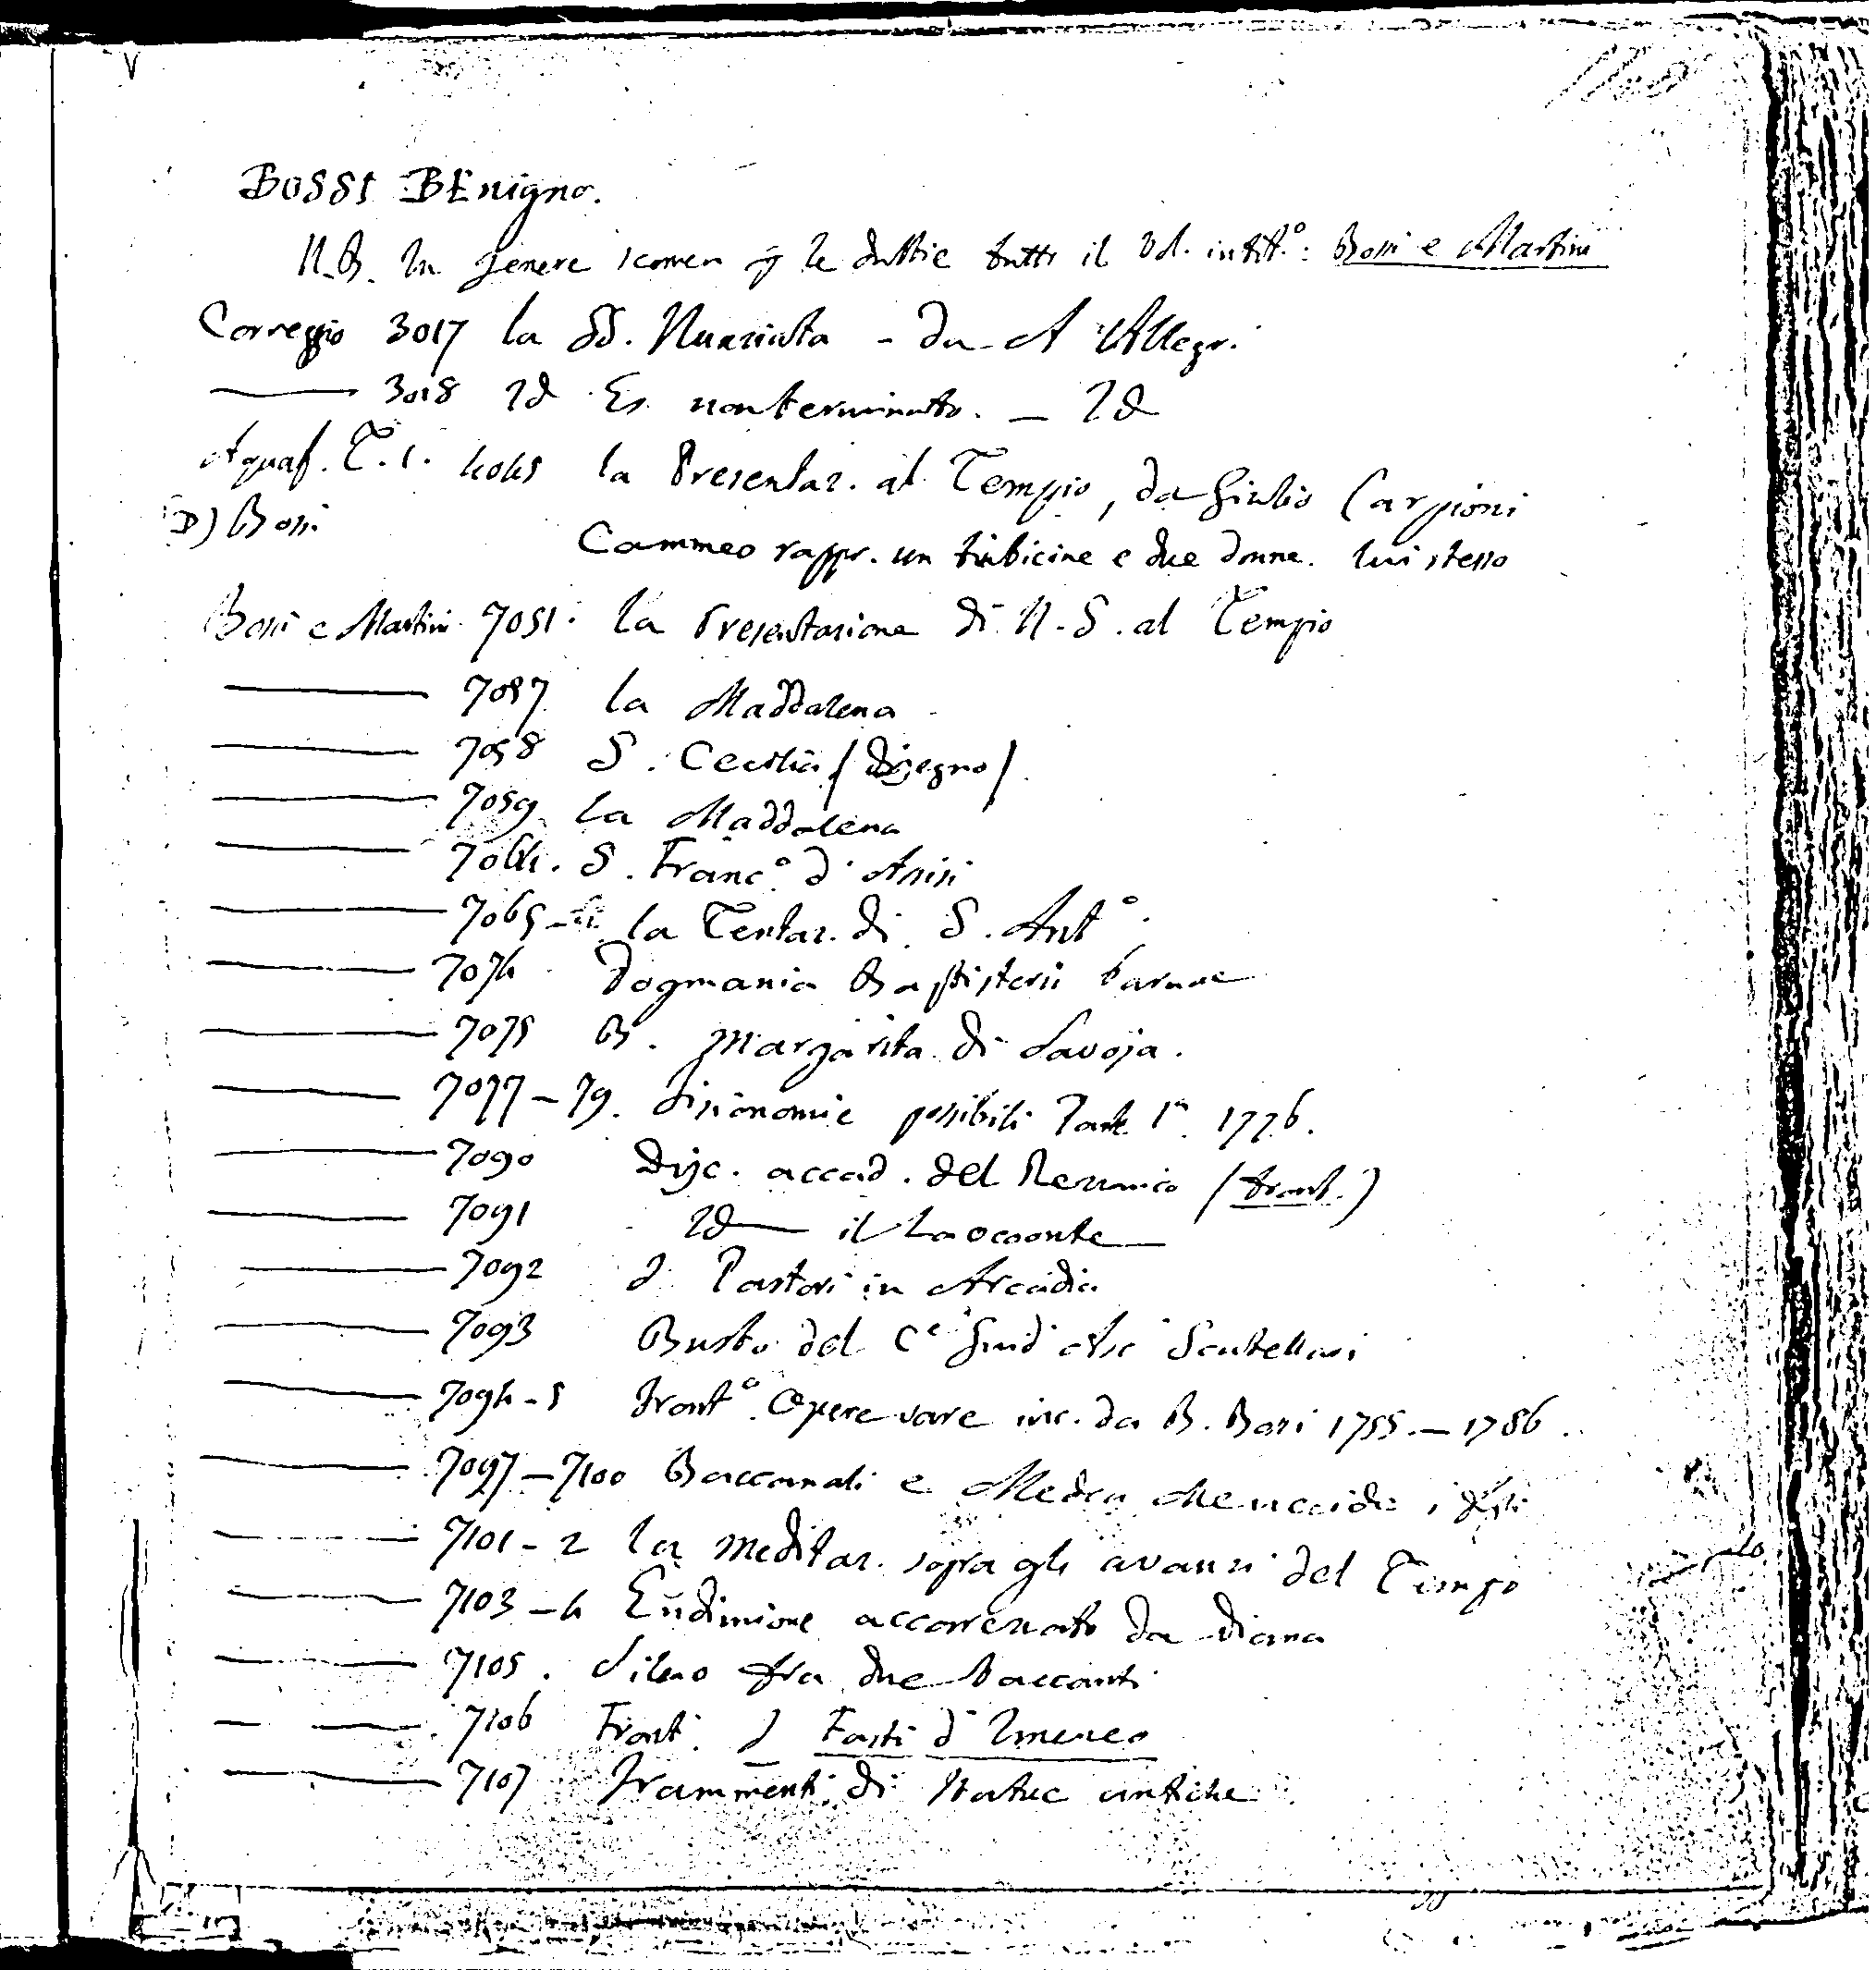 BOSSI BEnigno.
N.B. In genere le tutto il Vol. intit.º: Bossi e Martini
Correggio 3017 la SS. Nunziata - da A Allegr.
——— 3018 Id Es. non terminato. — Id
Aquaf. T. 1. 4045 la Presentaz. al Tempio, da Giulio Carpioni
D) Bossi Cammeo rappr. un tubicine e due donne. lui stesso
Bossi e Martini 7051. la Presentazione di N. S. al Tempio
——— 7057 la Maddalena
——— 7058 S. Cecilia (disegno)
——— 7059 la Maddalena
——— 7064. S. Franc.º d'Assisi
——— 7065 la Tentaz. di S. Antº.
——— 7074 Dogmania Baptisterii Parmae
——— 7075 B. Margarita di Savoja.
——— 7077-79. Fisionomie possibili Parte 1ª. 1776.
——— 7090 Disc. accad. del Rezzonico (front.)
——— 7091 Id — il Laocoonte
——— 7092 I Pastori in Arcadia
——— 7093 Busto del Cᵉ Scutellari
——— 7094-5 Frontº. Opere varie inc. da B. Bossi 1755.—1786.
——— 7097-7100 Baccanali e Medea che uccide i figli
——— 7101-2 la meditaz. sopra gli avanzi del Tempo
——— 7103-4 Endimione accarezzato da Diana
——— 7105. Sileno fra due baccanti
——— 7106 Front. I Fasti d'Imeneo
——— 7107 Frammenti di statue antiche